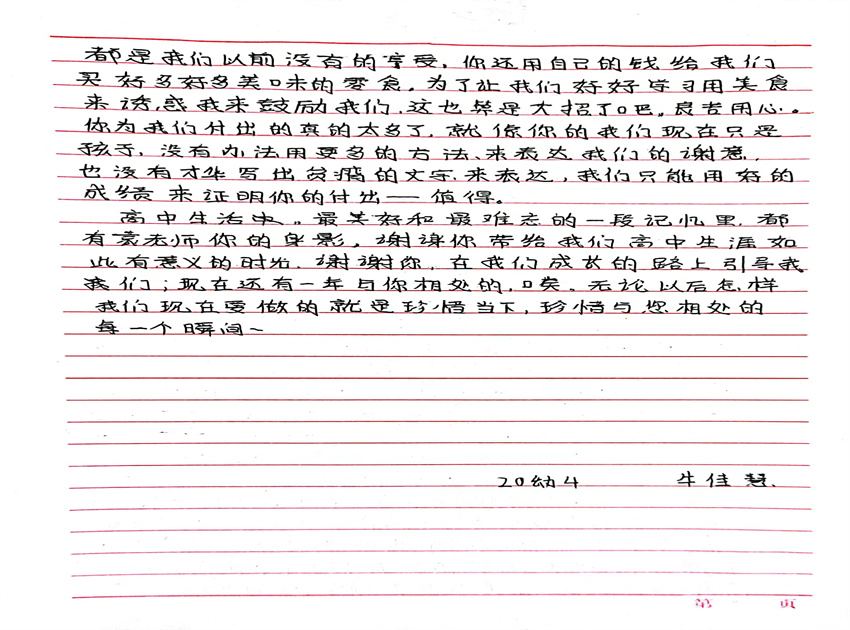 都是我们以前没有的享受，你还用自己的钱给我们
买好多好多美味的零食，为了让我们好好学习用美食
来诱惑我来鼓励我们，这也算是大招了吧。良苦用心。
你为我们付出的真的太多了，就像你的我们现在只是
孩子，没有办法用更多的方法、来表达我们的谢意，
也没有才华写出华丽的文字、来表达，我们只能用好的
成绩来证明你的付出——值得。
高中生活中。最美好和最难忘的一段记忆里，都
有袁老师你的身影，谢谢你带给我们高中生涯如
此有意义的时光，谢谢你，在我们成长的路上引导我
我们；现在还有一年与你相处的，唉、无论以后怎样
我们现在要做的就是珍惜当下，珍惜与您相处的
每一个瞬间~
20幼4 牛佳慧.
第 页